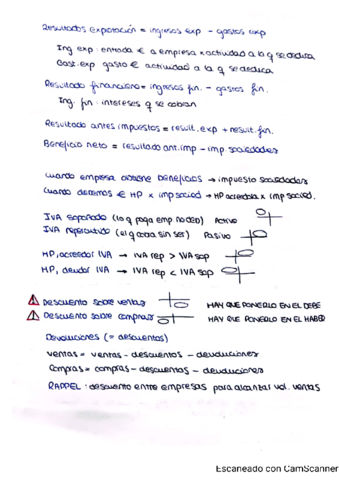 Resultados explotación = ingresos exp - gastos exp
Ing exp: entrada € a empresa x actividad a la q se dedica
Gast. exp gasto € actividad a la q se dedica
Resultado financiero = ingresos fin. - gastos fin.
Ing. fin: intereses q se cobran
Resultado antes impuestos = result. exp + result. fin.
Beneficio neto = resultado ant. imp - imp sociedades
Cuando empresa obtiene beneficios → impuesto sociedades
Cuando debemos € HP x imp socied → HP acreedora x imp socied.
IVA soportado (lo q paga emp no deb) Activo
IVA repercutido (el q cobra sin ser) Pasivo
HP, acreedor IVA → IVA rep > IVA sop
HP, deudor IVA → IVA rep < IVA sop
Descuento sobre ventas HAY QUE PONERLO EN EL DEBE
Descuento sobre compras HAY QUE PONERLO EN EL HABER
Devoluciones (= descuentos)
Ventas = ventas - descuentos - devoluciones
Compras = compras - descuentos - devoluciones
RAPPEL: descuento entre empresas para alcanzar vol. ventas
Escaneado con CamScanner